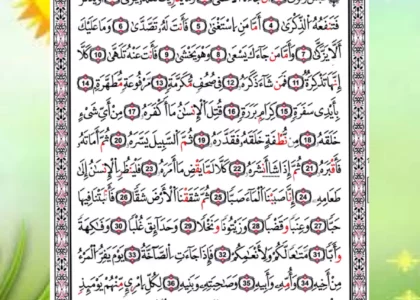 فَتَنفَعَهُ ٱلذِّكْرَىٰ ٤ أَمَّا مَنِ ٱسْتَغْنَىٰ ٥ فَأَنتَ لَهُۥ تَصَدَّىٰ ٦ وَمَا عَلَيْكَ
أَلَّا يَزَّكَّىٰ ٧ وَأَمَّا مَن جَآءَكَ يَسْعَىٰ ٨ وَهُوَ يَخْشَىٰ ٩ فَأَنتَ عَنْهُ تَلَهَّىٰ ١٠ كَلَّآ
إِنَّهَا تَذْكِرَةٌ ١١ فَمَن شَآءَ ذَكَرَهُۥ ١٢ فِى صُحُفٍ مُّكَرَّمَةٍ ١٣ مَّرْفُوعَةٍ مُّطَهَّرَةٍۭ ١٤
بِأَيْدِى سَفَرَةٍ ١٥ كِرَامٍۭ بَرَرَةٍ ١٦ قُتِلَ ٱلْإِنسَٰنُ مَآ أَكْفَرَهُۥ ١٧ مِنْ أَىِّ شَىْءٍ
خَلَقَهُۥ ١٨ مِن نُّطْفَةٍ خَلَقَهُۥ فَقَدَّرَهُۥ ١٩ ثُمَّ ٱلسَّبِيلَ يَسَّرَهُۥ ٢٠ ثُمَّ أَمَاتَهُۥ
فَأَقْبَرَهُۥ ٢١ ثُمَّ إِذَا شَآءَ أَنشَرَهُۥ ٢٢ كَلَّا لَمَّا يَقْضِ مَآ أَمَرَهُۥ ٢٣ فَلْيَنظُرِ ٱلْإِنسَٰنُ إِلَىٰ
طَعَامِهِۦٓ ٢٤ أَنَّا صَبَبْنَا ٱلْمَآءَ صَبًّا ٢٥ ثُمَّ شَقَقْنَا ٱلْأَرْضَ شَقًّا ٢٦ فَأَنۢبَتْنَا فِيهَا
حَبًّا ٢٧ وَعِنَبًا وَقَضْبًا ٢٨ وَزَيْتُونًا وَنَخْلًا ٢٩ وَحَدَآئِقَ غُلْبًا ٣٠ وَفَٰكِهَةً
وَأَبًّا ٣١ مَّتَٰعًا لَّكُمْ وَلِأَنْعَٰمِكُمْ ٣٢ فَإِذَا جَآءَتِ ٱلصَّآخَّةُ ٣٣ يَوْمَ يَفِرُّ ٱلْمَرْءُ
مِنْ أَخِيهِ ٣٤ وَأُمِّهِۦ وَأَبِيهِ ٣٥ وَصَٰحِبَتِهِۦ وَبَنِيهِ ٣٦ لِكُلِّ ٱمْرِئٍ مِّنْهُمْ يَوْمَئِذٍ